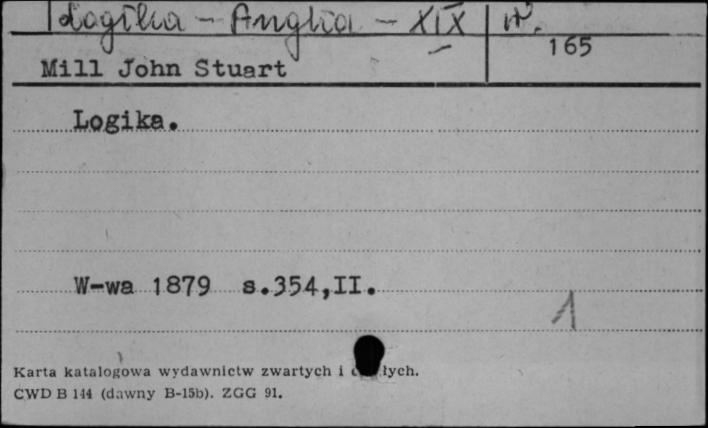 Logika - Anglia - XIX
165
Mill John Stuart
Logika.
W-wa 1879 s.354,II.
1
Karta katalogowa wydawnictw zwartych i
CWD B 144 (dawny B-15b). ZGG 91.